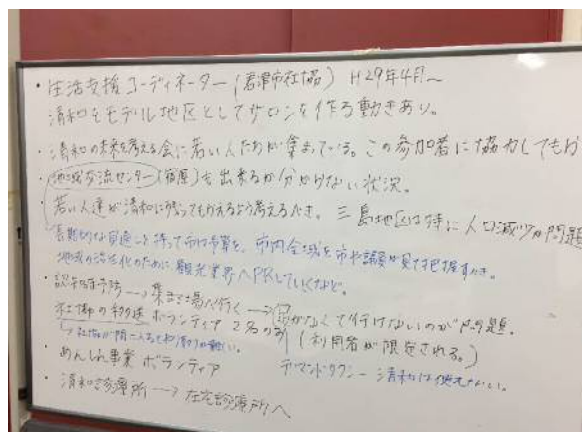 ・生活支援コーディネーター(君津市社協) H29年4月〜
清和をモデル地区としてサロンを作る動きあり。
・清和の未来を考える会に若い人たちが集まっている。この参加者に協力してもらう
・地域交流センター(宿原)も出来るか分からない状況。
若い人達が清和に残ってもらえるよう考えるべき。三島地区は特に人口減少が問題
長期的な見通しを持って市は予算を、市内全域を市や議員が見て把握すべき。
地域の活性化のために観光業界へPRしていくなど。
・認知症予防→集まる場へ行く→足がなくて行けないのが問題。
社協の移送ボランティア 2名のみ (利用者が限定される。)
デマンドタクシー 清和は使えない。
・めんしん事業 ボランティア
・清和診療所→在宅診療所へ